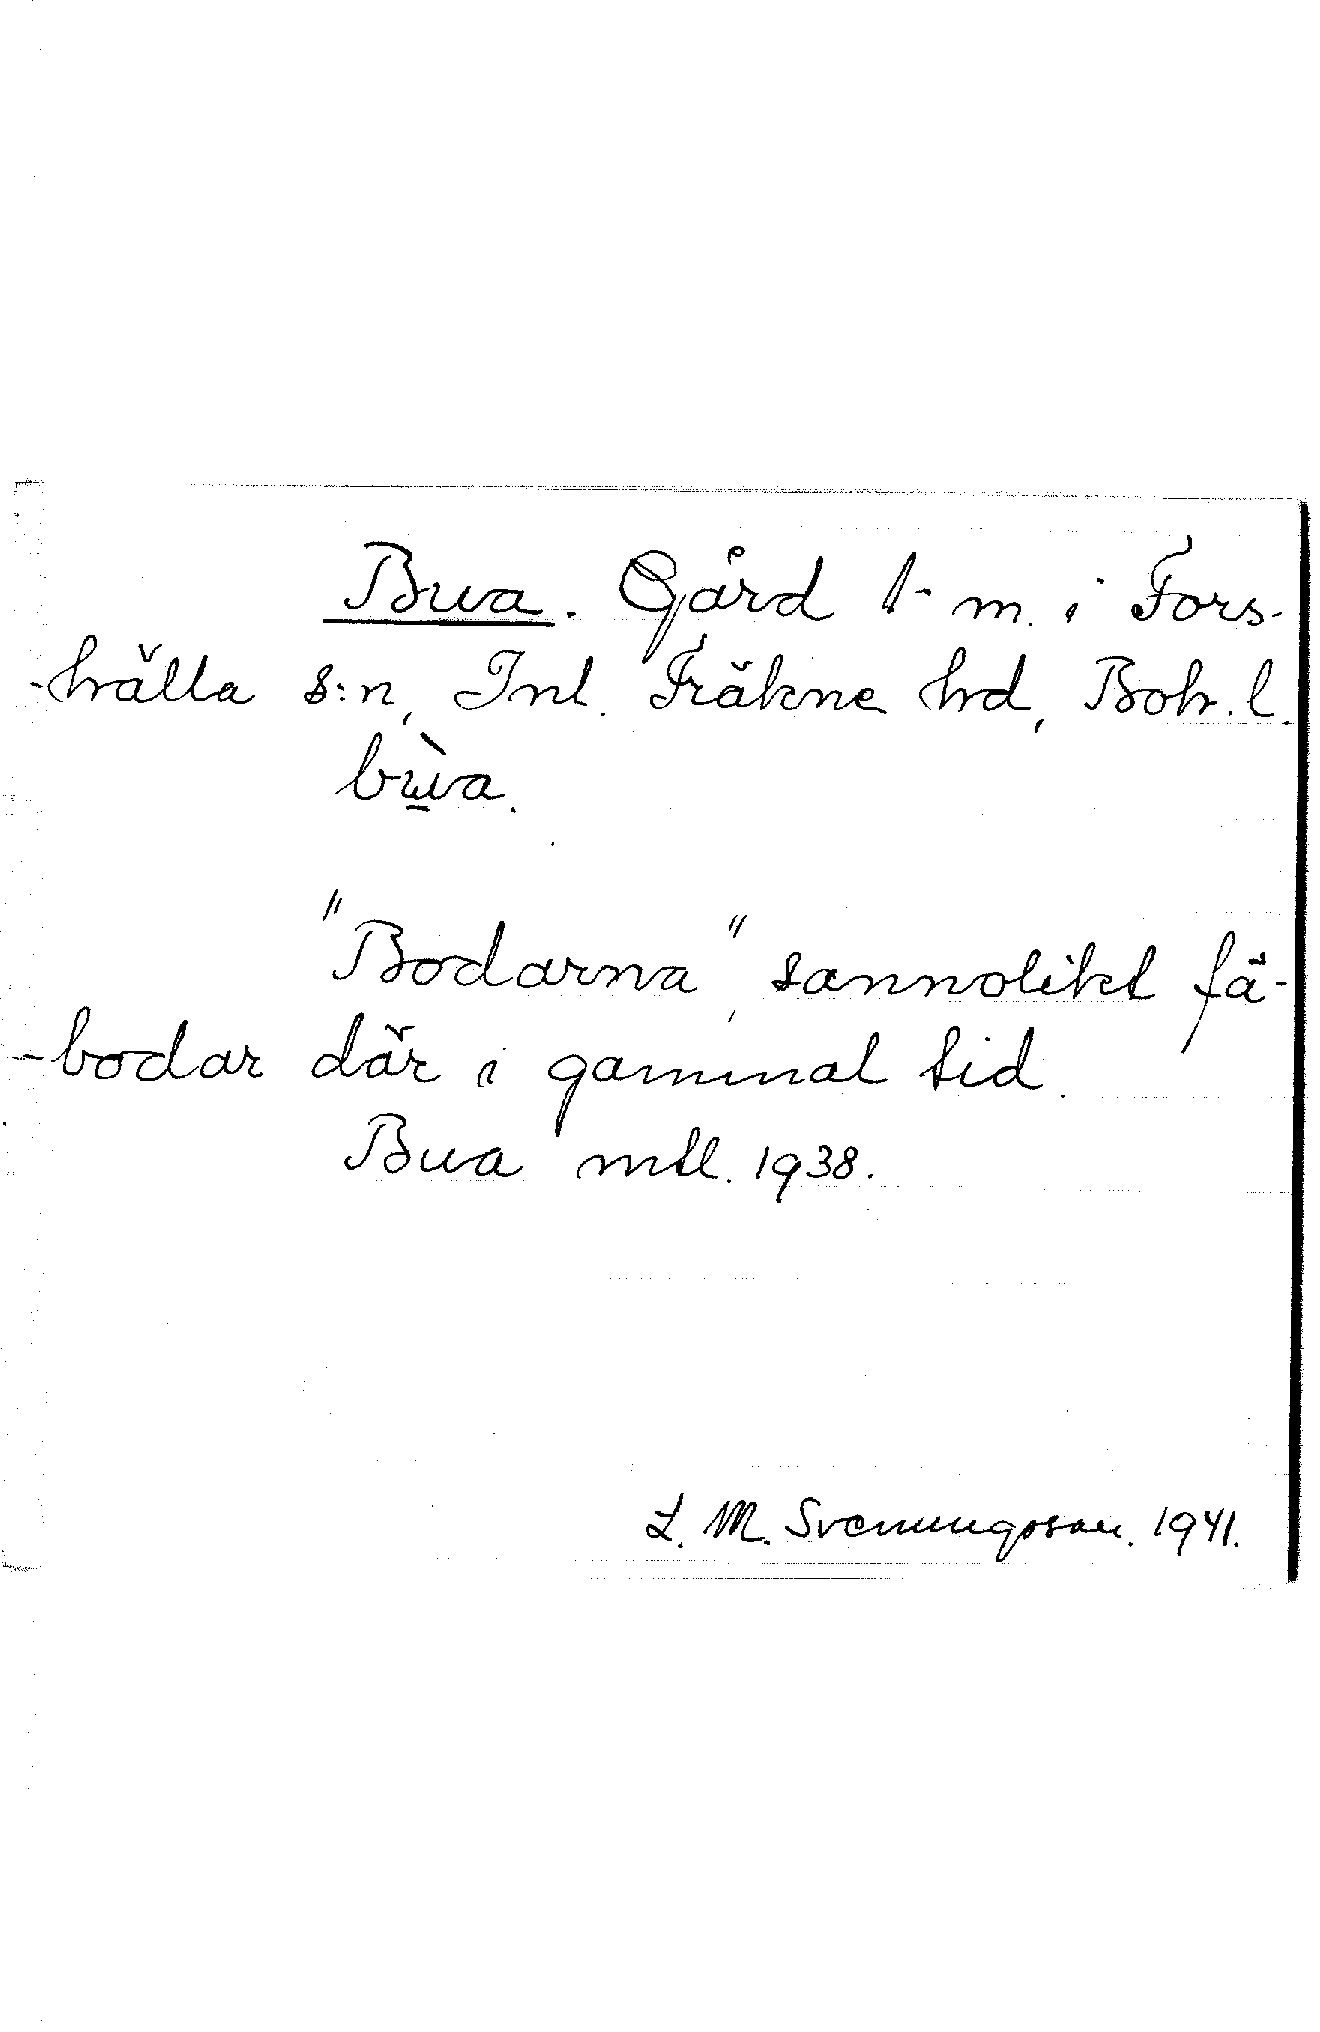 Bua. Gård 1 m. i Fors-
-hälla s:n, Inl. Fräkne hd, Boh. l.
bù̲a.
"Bodarna", sannolikt fä-
-bodar där i gammal tid.
Bua mtl. 1938.
L. M. Svenungsson. 1941.